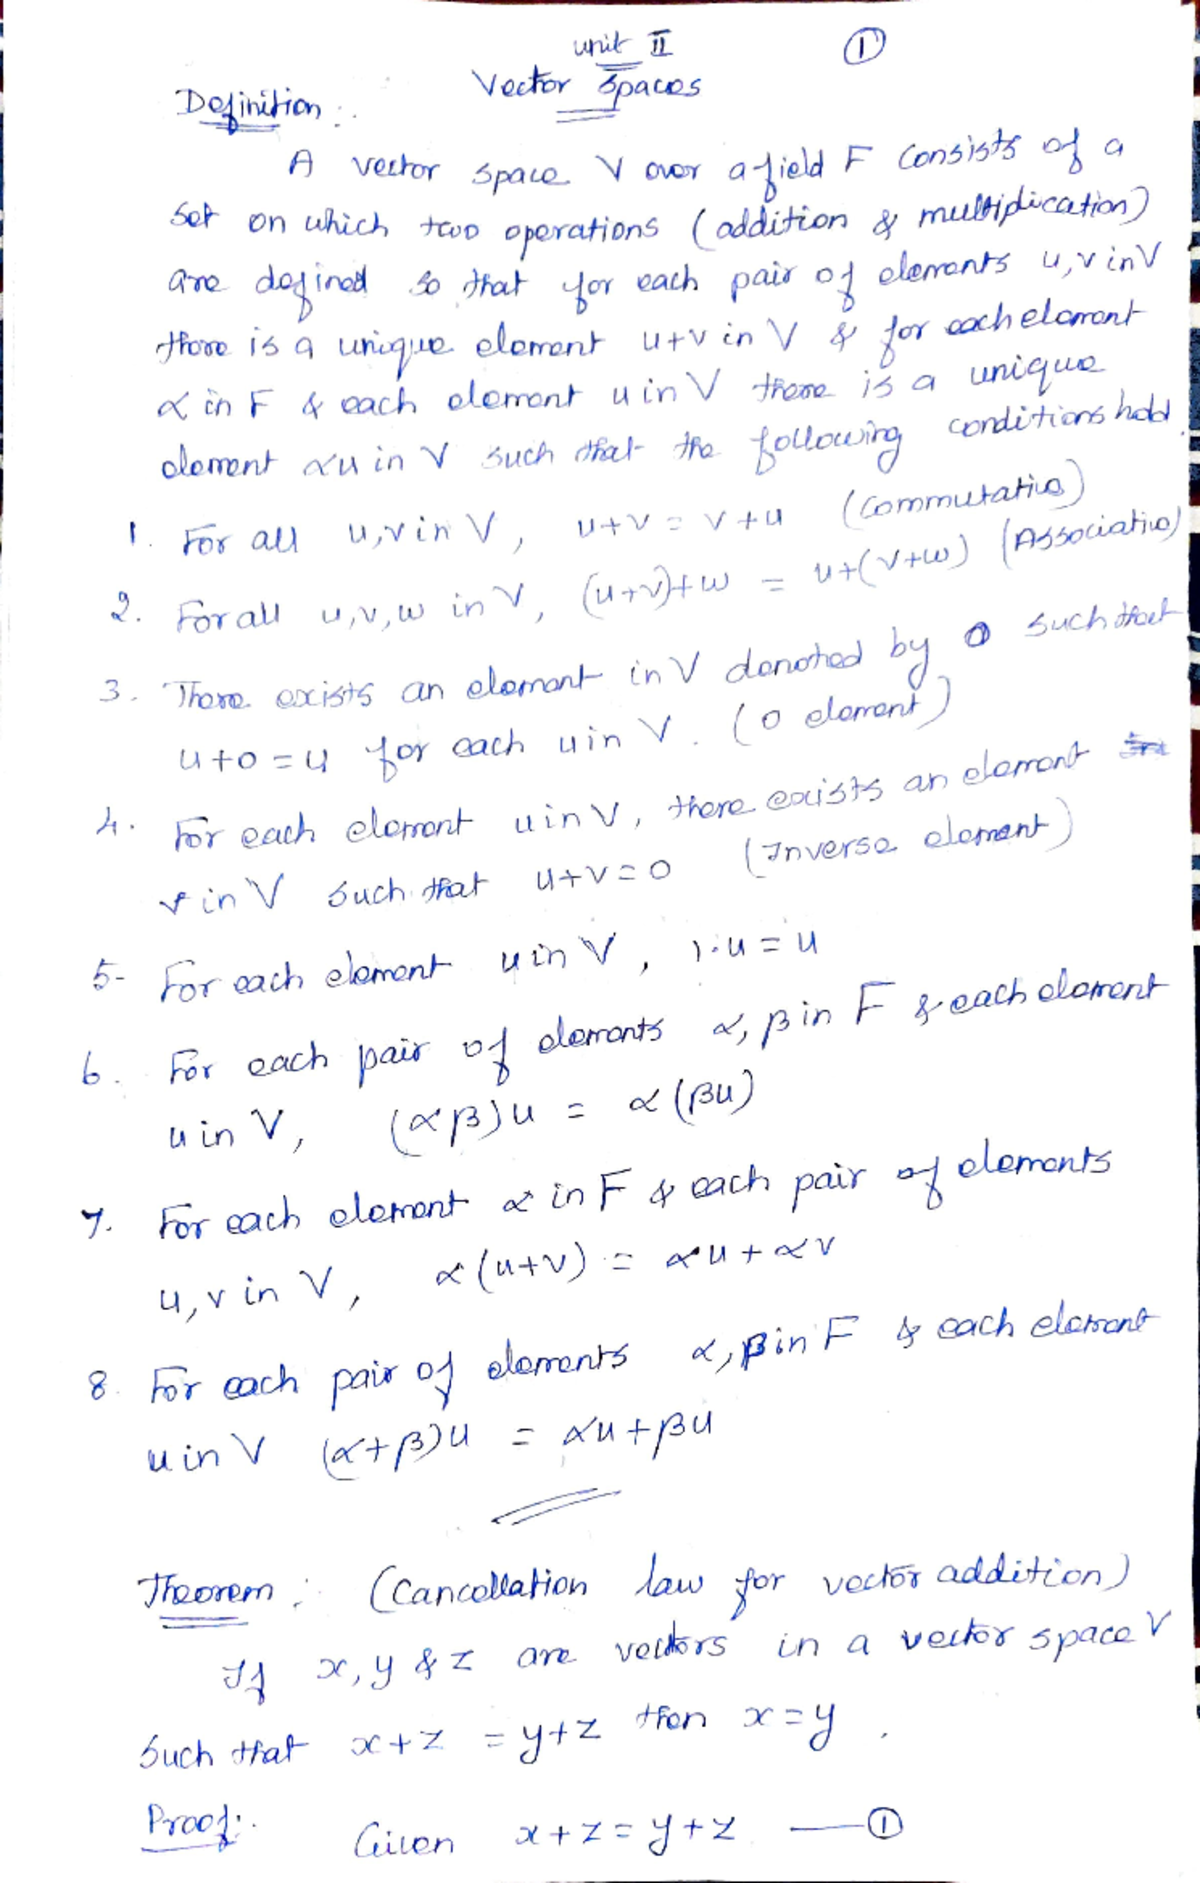 unit II
①
Vector Spaces
Definition :.
A vector space V over a field F consists of a
set on which two operations (addition & multiplication)
are defined so that for each pair of elements u, v in V
there is a unique element u+v in V & for each element
α in F & each element u in V there is a unique
element αu in V such that the following conditions hold.
1. For all u,v in V, u+v = v+u (Commutative)
2. For all u,v,w in V, (u+v)+w = u+(v+w) (Associative)
3. There exists an element in V denoted by 0 such that
u+0=u for each u in V. (0 element)
4. For each element u in V, there exists an element
v in V such that u+v=0 (Inverse element)
5- For each element u in V, 1·u=u
6. For each pair of elements α, β in F & each element
u in V, (αβ)u = α(βu)
7. For each element α in F & each pair of elements
u,v in V, α(u+v) = αu+αv
8. For each pair of elements α, β in F & each element
u in V (α+β)u = αu+βu
Theorem : (Cancellation law for vector addition)
If x, y & z are vectors in a vector space V
such that x+z = y+z then x=y.
Proof:. Given x+z=y+z —①